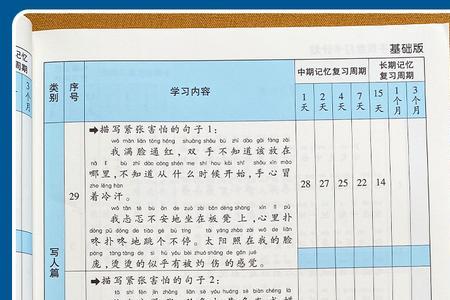 基础版
记忆
周期
3个月
类别
序号
学习内容
中期记忆复习周期
长期记忆复习周期
1天
2天
4天
7天
15天
1个月
3个月
写人篇
29
➡描写紧张害怕的句子1:
wǒ mǎn liǎn tōng hóng shuāng shǒu bù zhī dào gāi fàng zài
我满脸通红,双手不知道该放在
nǎ lǐ bù zhī dào cóng shén me shí hou kāi shǐ shǒu xīn mào
哪里,不知道从什么时候开始,手心冒
zhe lěng hàn
着冷汗。
wǒ tǎn tè bù ān de zuò zài bǎn dèng shàng xīn lǐ pū
我忐忑不安地坐在板凳上,心里扑
dōng pū dōng de tiào gè bù tíng tài yáng zhào zài wǒ de liǎn
咚扑咚地跳个不停。太阳照在我的脸
páng tàng tàng de sì hū yǒu bèi zhuó shāng de gǎn jué
庞,烫烫的似乎有被灼伤的感觉。
28
27
25
22
14
➡描写紧张害怕的句子2: